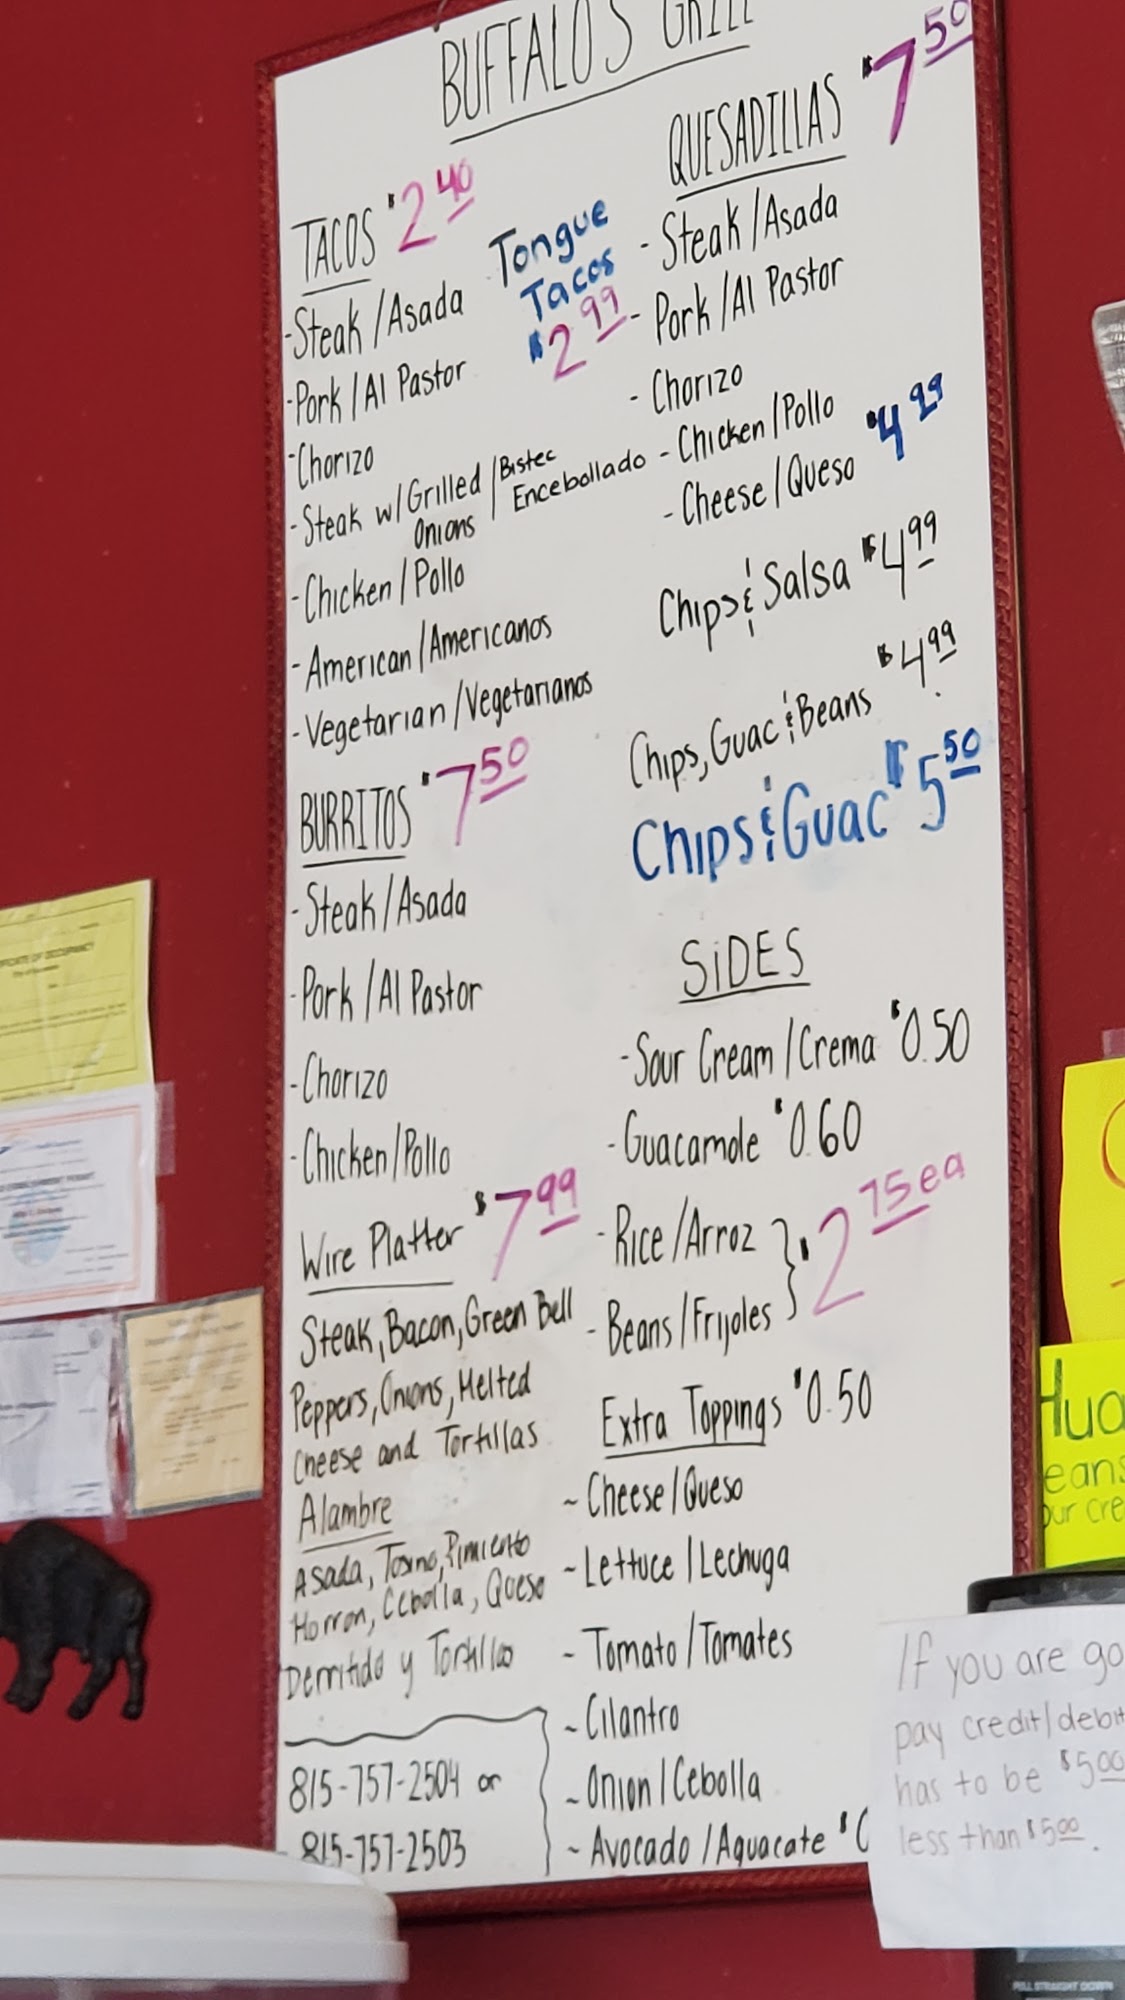 BUFFALO'S GRILL
TACOS $2.40
-Steak/Asada
-Pork/Al Pastor
-Chorizo
-Steak w/Grilled Onions/Bistec Encebollado
-Chicken/Pollo
-American/Americanos
-Vegetarian/Vegetarianos
Tongue
Tacos
$2.99
BURRITOS $7.50
-Steak/Asada
-Pork/Al Pastor
-Chorizo
-Chicken/Pollo
Wire Platter $7.99
Steak, Bacon, Green Bell
Peppers, Onions, Melted
Cheese and Tortillas
Alambre
Asada, Tosino, Pimiento
Morron, Cebolla, Queso
Derritido y Tortillas
815-757-2504 or
815-757-2503
QUESADILLAS $7.50
-Steak/Asada
-Pork/Al Pastor
-Chorizo
-Chicken/Pollo
-Cheese/Queso $4.99
Chips & Salsa $4.99
Chips, Guac & Beans $4.99
Chips & Guac $5.50
SiDES
-Sour Cream/Crema $0.50
-Guacamole $0.60
-Rice/Arroz
-Beans/Frijoles } $2.75 ea
Extra Toppings $0.50
~Cheese/Queso
~Lettuce/Lechuga
~Tomato/Tomates
~Cilantro
~Onion/Cebolla
~Avocado/Aguacate $0
If you are go
pay credit/debit
has to be $5.00
less than $5.00.
CERTIFICATE OF OCCUPANCY
PULL STRAIGHT DOWN